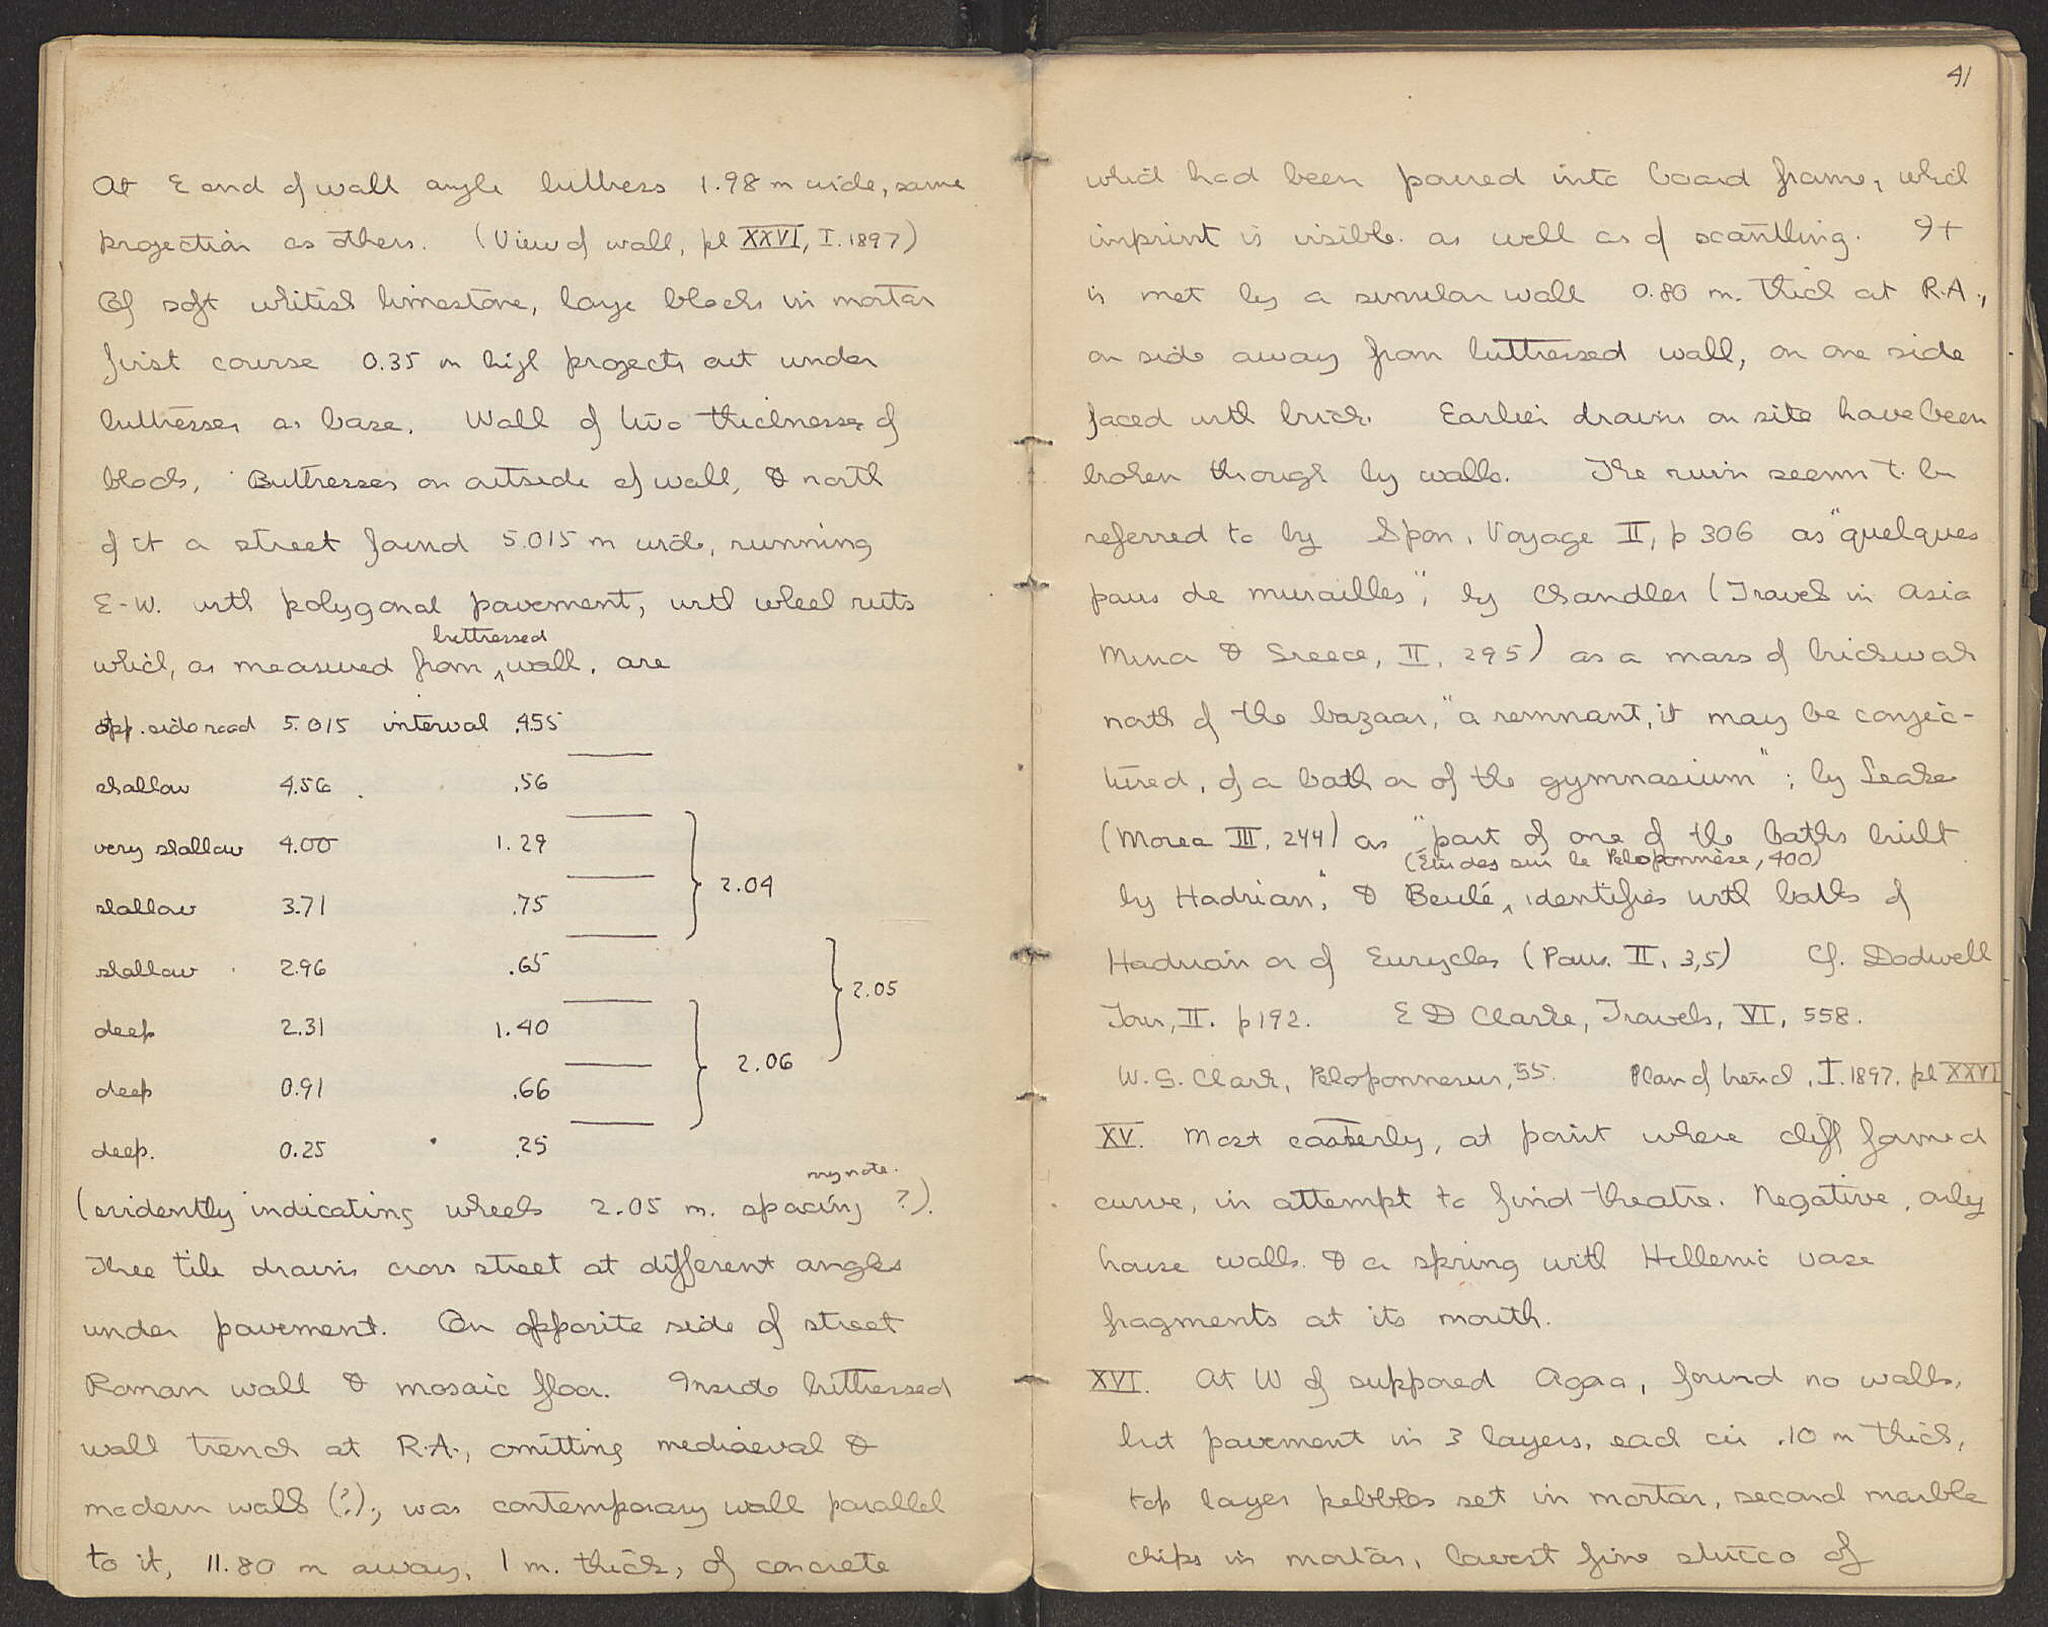 At E end of wall angle buttress 1.98 m wide, same
projection as others. (View of wall, pl XXVI, I. 1897)
Of soft whitish limestone, large blocks in mortar
first course 0.35 m high projects out under
buttresses as base. Wall of two thicknesses of
blocks, Buttresses on outside of wall, & north
of it a street found 5.015 m wide, running
E-W. with polygonal pavement, with wheel ruts
buttressed
which, as measured from ^ wall, are
opp. side road 5.015 interval .455
shallow 4.56 .56
very shallow 4.00 1.29
shallow 3.71 .75
2.04
shallow 2.96 .65
2.05
deep 2.31 1.40
2.06
deep 0.91 .66
deep. 0.25 .25
my note.
(evidently indicating wheels 2.05 m. spacing ?).
Three tile drains cross street at different angles
under pavement. On opposite side of street
Roman wall & mosaic floor. Inside buttressed
wall trench at R.A., omitting mediaeval &
modern walls (?), was contemporary wall parallel
to it, 11.80 m away, 1 m. thick, of concrete
41
which had been poured into board frame, which
imprint is visible as well as of scantling. It
is met by a similar wall 0.80 m. thick at R.A.,
on side away from buttressed wall, on one side
faced with brick. Earlier drains on site have been
broken through by walls. The ruin seems to be
referred to by Spon, Voyage II, p 306 as "quelques
paus de murailles", by Chandler (Travels in Asia
Minor & Greece, II, 295) as a mass of brickwork
north of the bazaar, "a remnant, it may be conjec-
tured, of a bath or of the gymnasium"; by Leake
(Morea III, 244) as "part of one of the baths built
(Études sur le Péloponnèse, 400)
by Hadrian," & Beulé ^ identifies with baths of
Hadrian or of Eurycles (Paus. II, 3,5) Cf. Dodwell
Tour, II. p 192. E D Clarke, Travels, VI, 558.
W. G. Clark, Peloponnesus, 55. Plan of trench, I. 1897. pl XXVI
XV. Most easterly, at point where cliff formed
curve, in attempt to find theatre. Negative, only
house walls & a spring with Hellenic vase
fragments at its mouth.
XVI. At W of supposed Agora, found no walls,
but pavement in 3 layers, each cir .10 m thick,
top layer pebbles set in mortar, second marble
chips in mortar, lowest fine stucco of